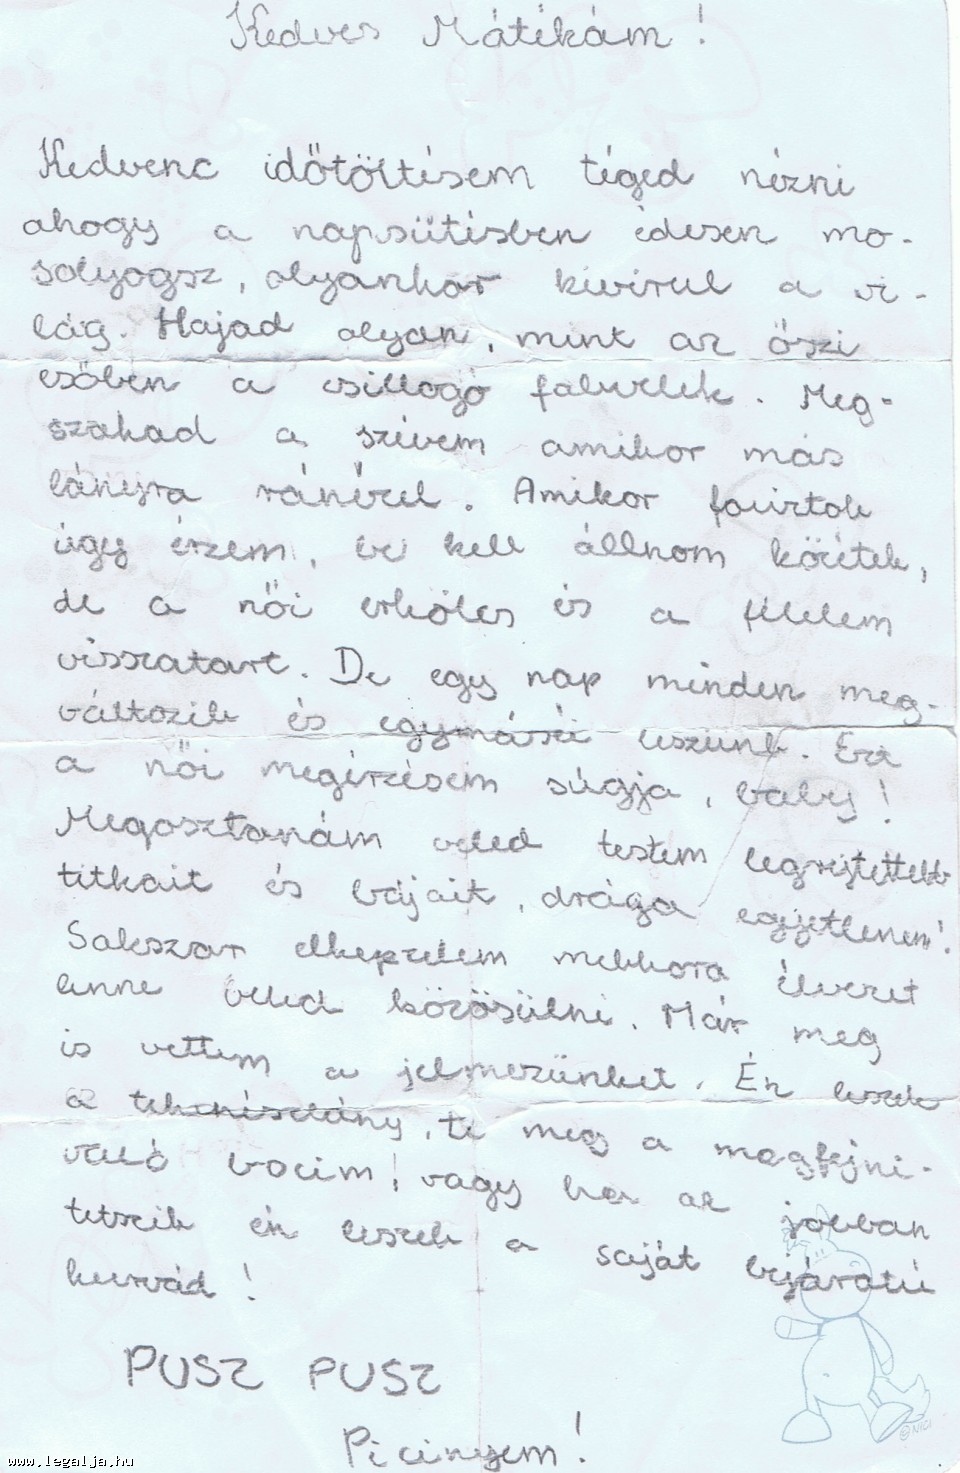 Kedves Mátikám!
Kedvenc időtöltésem téged nézni
ahogy a napsütésben édesen mo-
solyogsz, olyankor kivirul a vi-
lág. Hajad olyan, mint az őszi
esőben a csillogó falvelek. Meg-
szakad a szívem amikor más
lányra ránézel. Amikor fociztok
úgy érzem, be kell állnom közétek,
de a női erkölcs és a félelem
visszatart. De egy nap minden meg-
változik és egymáséi leszünk. Ezt
a női megérzésem súgja, baby!
Megosztanám veled testem legrejtettebb
titkait és bájait, drága egyetlenem!
Sokszor elkepzelem mekkora élvezet
lenne veled közösülni. Már meg
is vettem a jelmezünket. Én leszek
a tehenészlány, te meg a megfejni-
való bocim! vagy ha az jobban
tetszik én leszek a saját bejáratú
kurvád!
PUSZ PUSZ
Picinyem!
www.legalja.hu
©NICI